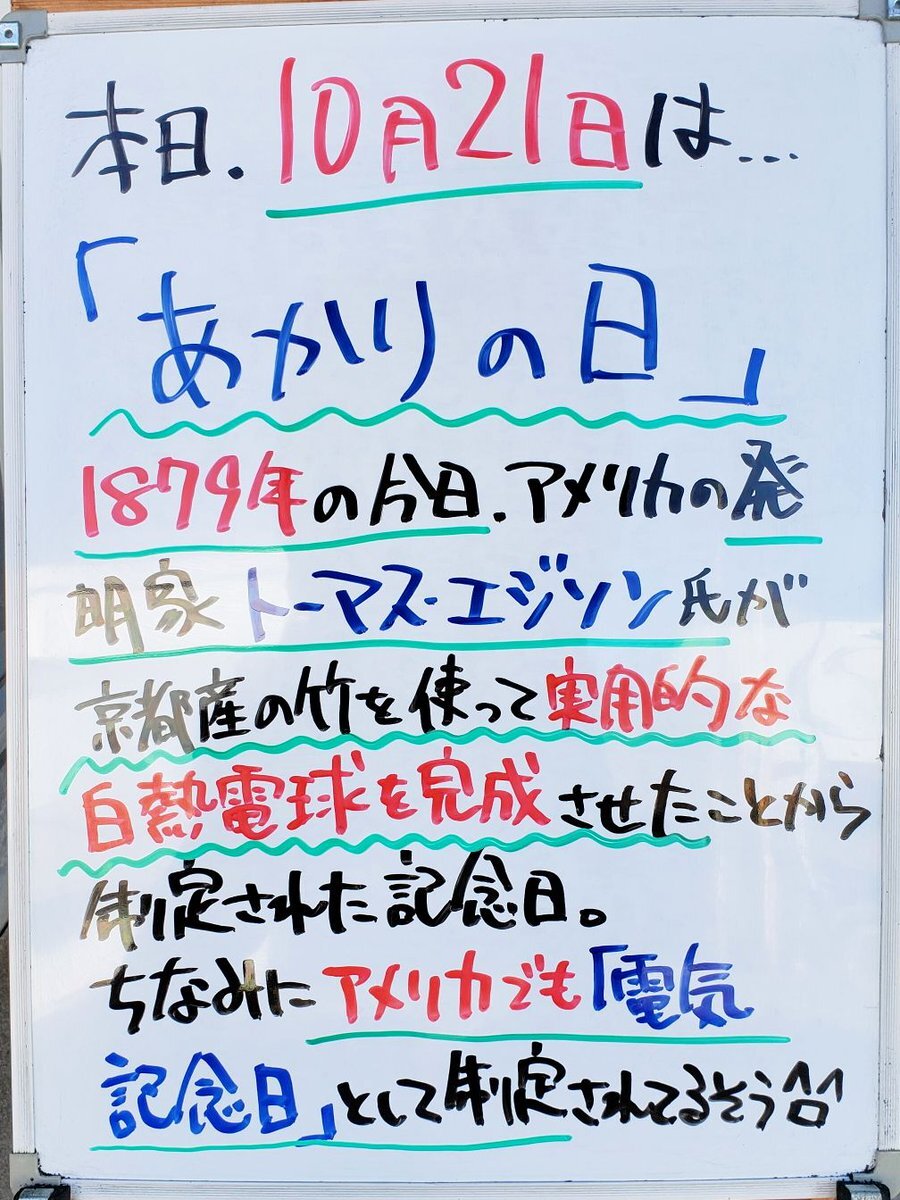 本日、10月21日は...
「あかりの日」
1879年の今日、アメリカの発
明家トーマス・エジソン氏が
京都産の竹を使って実用的な
白熱電球を完成させたことから
制定された記念日。
ちなみにアメリカでも「電気
記念日」として制定されてるそう^^